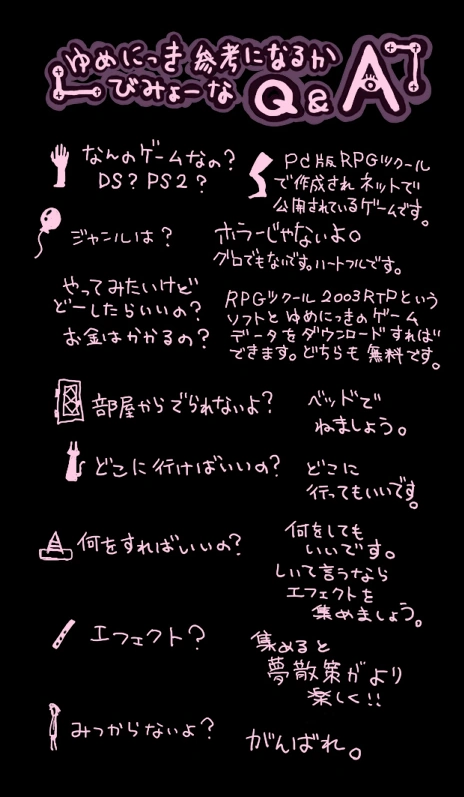 ゆめにっき参考になるか
びみょーな Q&A
なんのゲームなの?
DS? PS2?
PC版RPGツクール
で作成されネットで
公開されているゲームです。
ジャンルは?
ホラーじゃないよ。
グロでもないです。ハートフルです。
やってみたいけど
どーしたらいいの?
お金はかかるの?
RPGツクール2003RTPという
ソフトとゆめにっきのゲーム
データをダウンロードすれば
できます。どちらも無料です。
部屋からでられないよ?
ベッドで
ねましょう。
どこに行けばいいの?
どこに
行ってもいいです。
何をすればいいの?
何をしても
いいです。
しいて言うなら
エフェクトを
集めましょう。
エフェクト?
集めると
夢散策がより
楽しく!!
みつからないよ?
がんばれ。